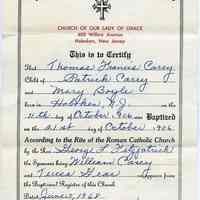 CHURCH OF OUR LADY OF GRACE
400 Willow Avenue
Hoboken, New Jersey
This is to Certify
That Thomas Francis Carey
Child of Patrick Carey
and Mary Boyle
born in Hoboken, N.J. on the
11th day of October 1906 was Baptized
on the 21st day of October 1906
According to the Rite of the Roman Catholic Church
by the Rev. George F. Fitzpatrick
the Sponsors being William Casey
and Teresa as appears from
the Baptismal Register of this Church
Dated 1968